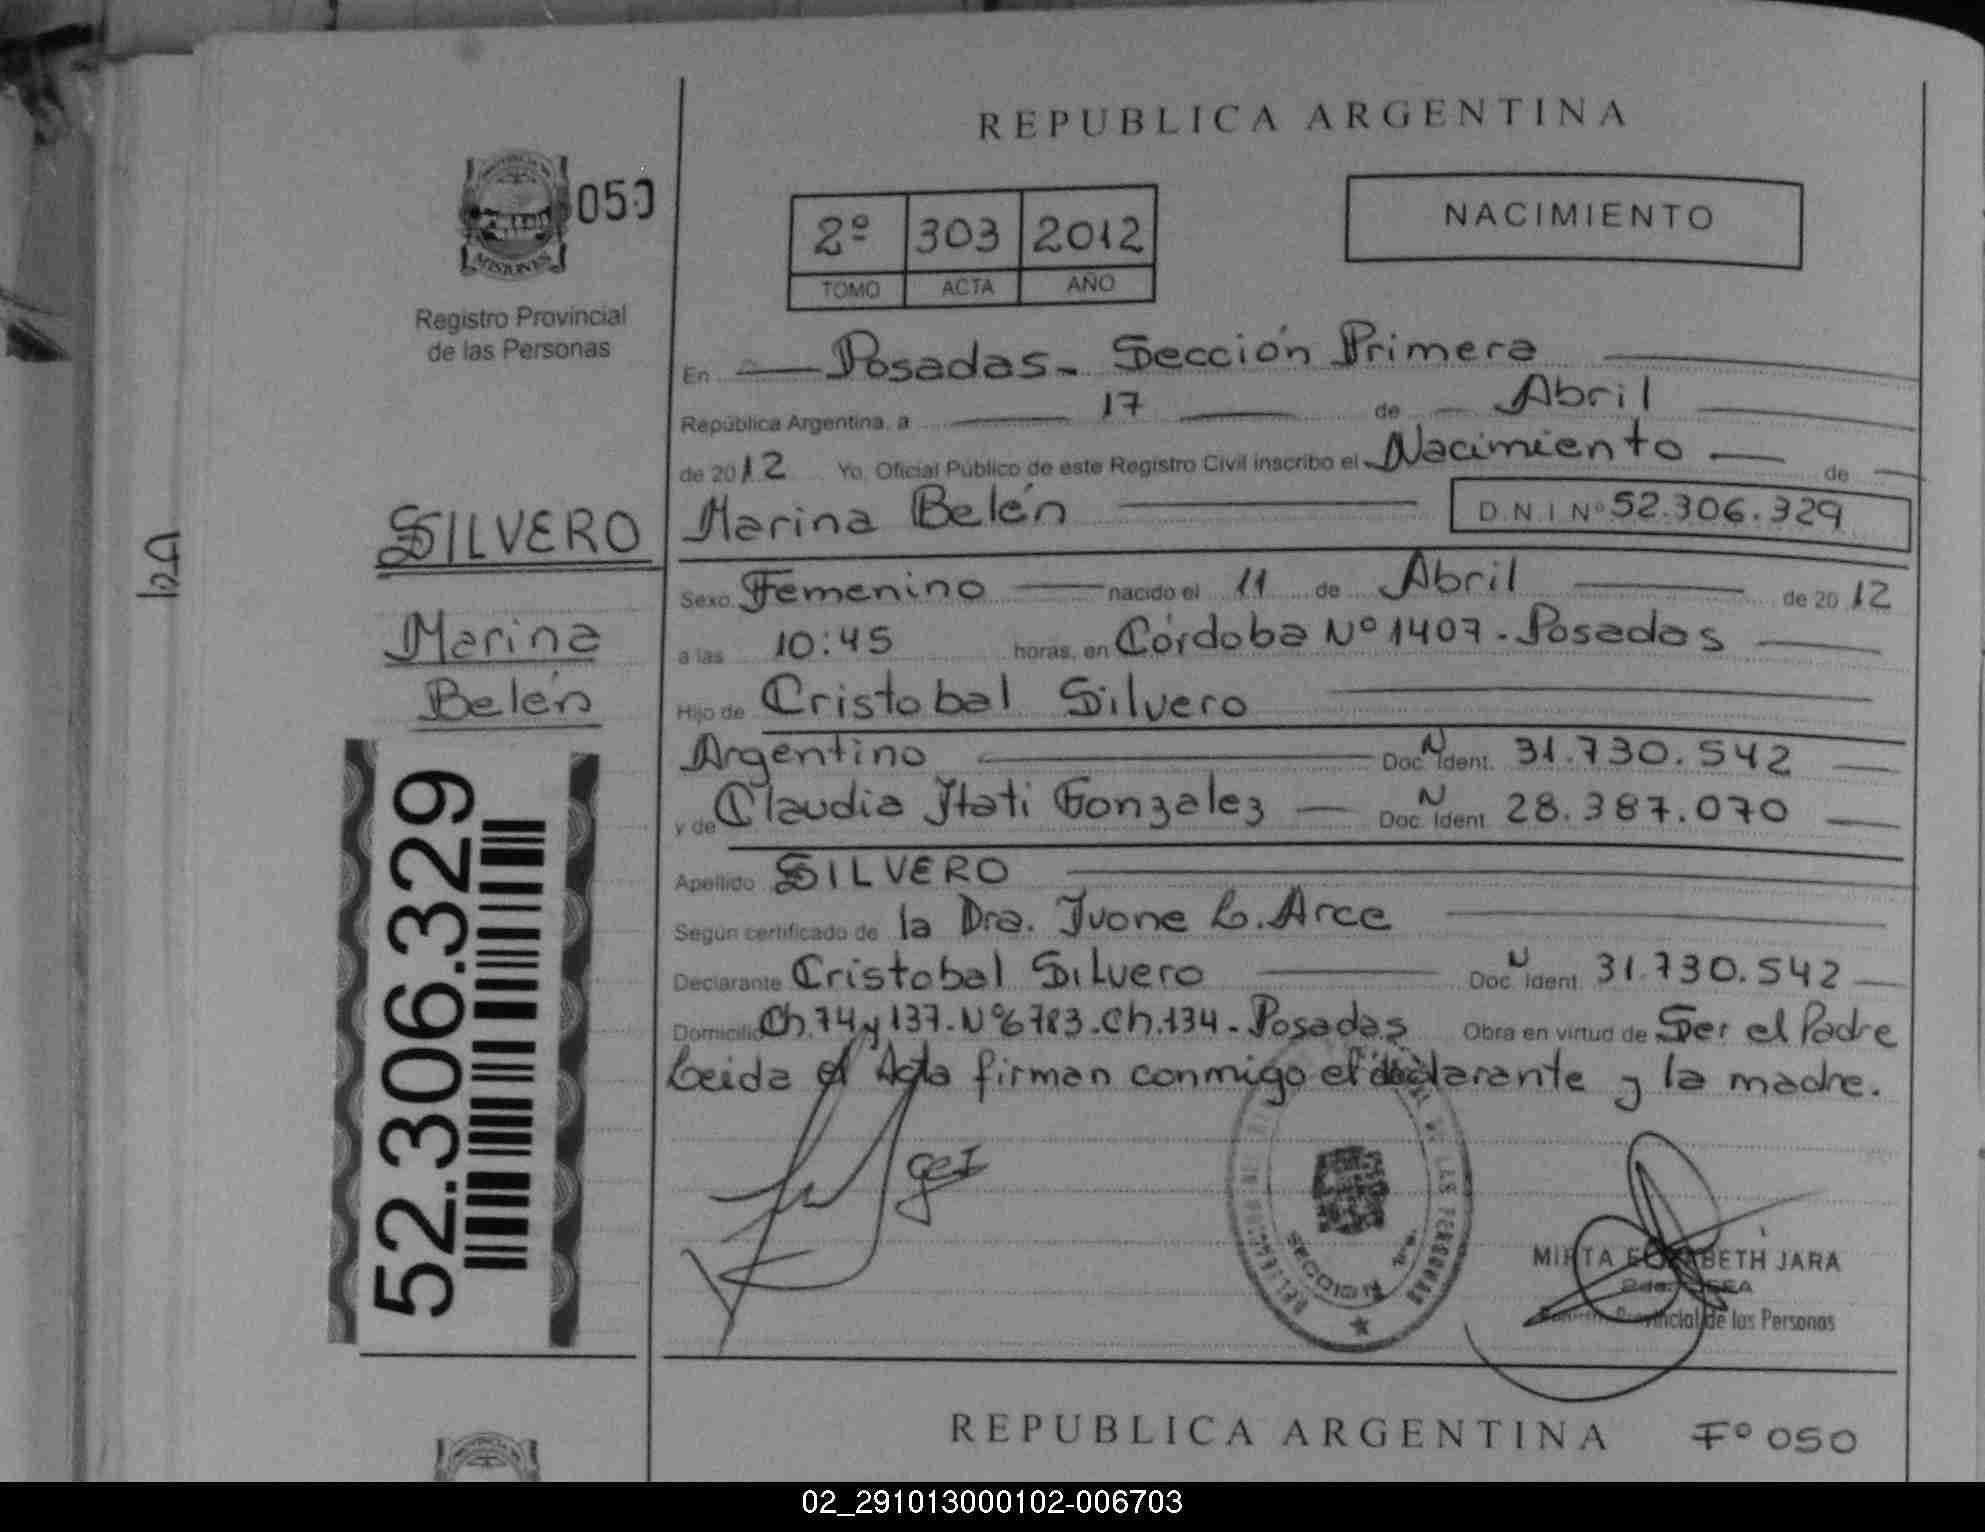 REPUBLICA ARGENTINA
PROVINCIA DE
MISIONES
050
Registro Provincial
de las Personas
2º 303 2012
TOMO ACTA AÑO
NACIMIENTO
En Posadas - Sección Primera
República Argentina, a 17 de Abril
de 2012 Yo, Oficial Público de este Registro Civil inscribo el Nacimiento de
Marina Belén D.N.I Nº 52.306.329
SILVERO
Marina
Belén
Sexo Femenino nacido el 11 de Abril de 2012
a las 10:45 horas, en Córdoba Nº 1407 - Posadas
Hijo de Cristobal Silvero
Argentino Doc. N Ident. 31.730.542
y de Claudia Itati Gonzalez Doc. N Ident. 28.387.070
Apellido SILVERO
Según certificado de la Dra. Ivone L. Arce
Declarante Cristobal Silvero Doc. N Ident. 31.730.542
Domicilio Ch.74 y 137. Nº 6783. Ch.134 - Posadas Obra en virtud de Ser el Padre
Leida el Acta firman conmigo el declarante y la madre.
52.306.329
MIRTA ELIZABETH JARA
Provincial de las Personas
REPUBLICA ARGENTINA Fº 050
02_291013000102-006703